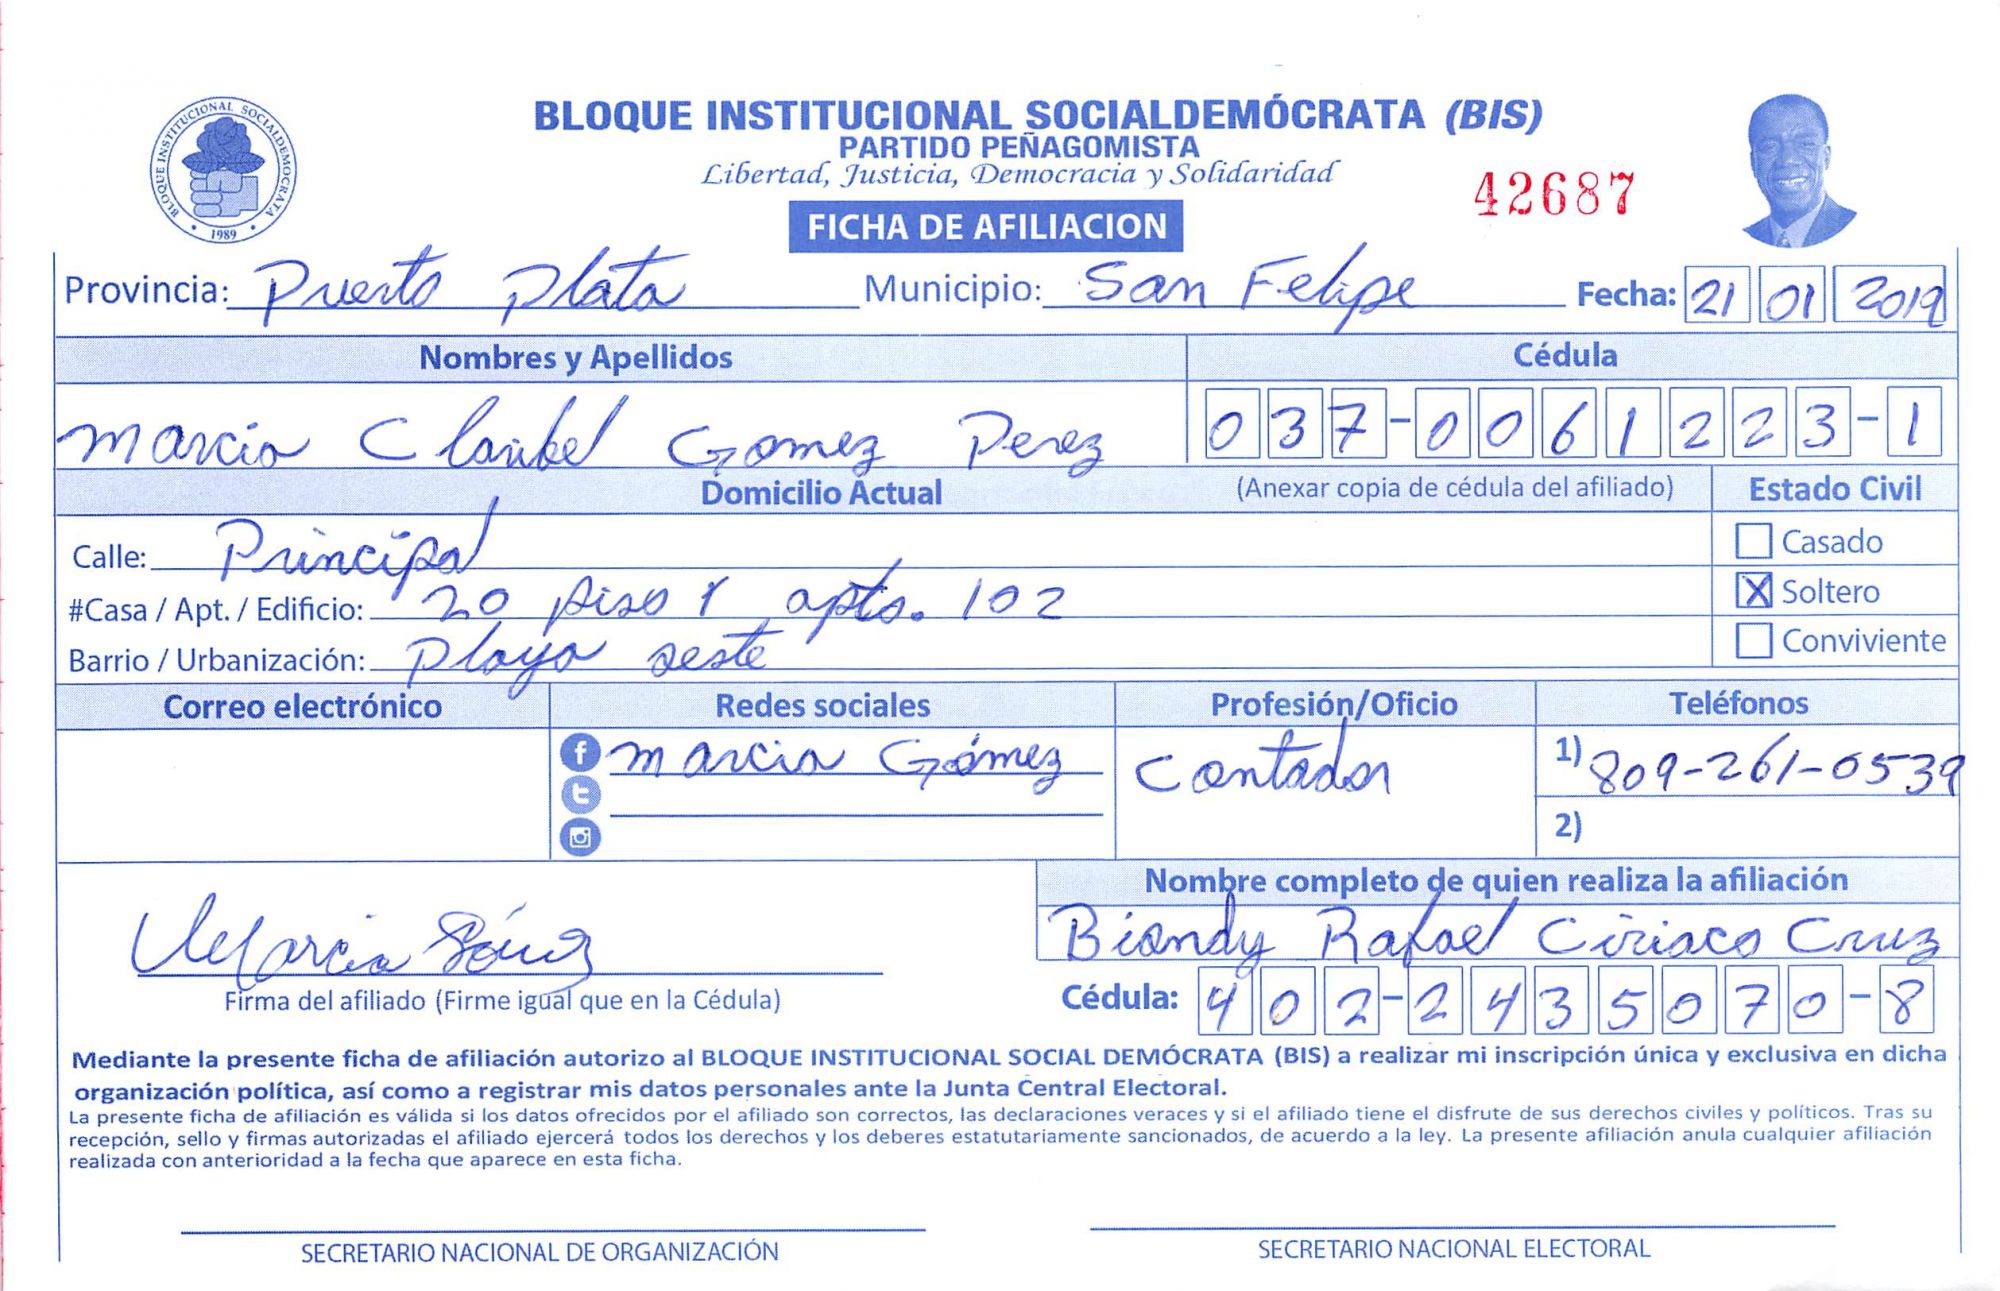 BLOQUE INSTITUCIONAL SOCIALDEMOCRATA
1989
BLOQUE INSTITUCIONAL SOCIALDEMÓCRATA (BIS)
PARTIDO PEÑAGOMISTA
Libertad, Justicia, Democracia y Solidaridad
42687
FICHA DE AFILIACION
Provincia: Puerto Plata Municipio: San Felipe Fecha: 21 01 2019
Nombres y Apellidos Cédula
Marcia Claribel Gomez Perez 037-0061223-1
Domicilio Actual (Anexar copia de cédula del afiliado) Estado Civil
Calle: Principal Casado
#Casa / Apt. / Edificio: 20 piso 1 apto. 102 X Soltero
Barrio / Urbanización: Playa oeste Conviviente
Correo electrónico Redes sociales Profesión/Oficio Teléfonos
Marcia Gómez Contador 1) 809-261-0539
2)
Nombre completo de quien realiza la afiliación
Biandy Rafael Ciriaco Cruz
Marcia Gómez
Firma del afiliado (Firme igual que en la Cédula) Cédula: 402-2435070-8
Mediante la presente ficha de afiliación autorizo al BLOQUE INSTITUCIONAL SOCIAL DEMÓCRATA (BIS) a realizar mi inscripción única y exclusiva en dicha
organización política, así como a registrar mis datos personales ante la Junta Central Electoral.
La presente ficha de afiliación es válida si los datos ofrecidos por el afiliado son correctos, las declaraciones veraces y si el afiliado tiene el disfrute de sus derechos civiles y políticos. Tras su
recepción, sello y firmas autorizadas el afiliado ejercerá todos los derechos y los deberes estatutariamente sancionados, de acuerdo a la ley. La presente afiliación anula cualquier afiliación
realizada con anterioridad a la fecha que aparece en esta ficha.
SECRETARIO NACIONAL DE ORGANIZACIÓN SECRETARIO NACIONAL ELECTORAL